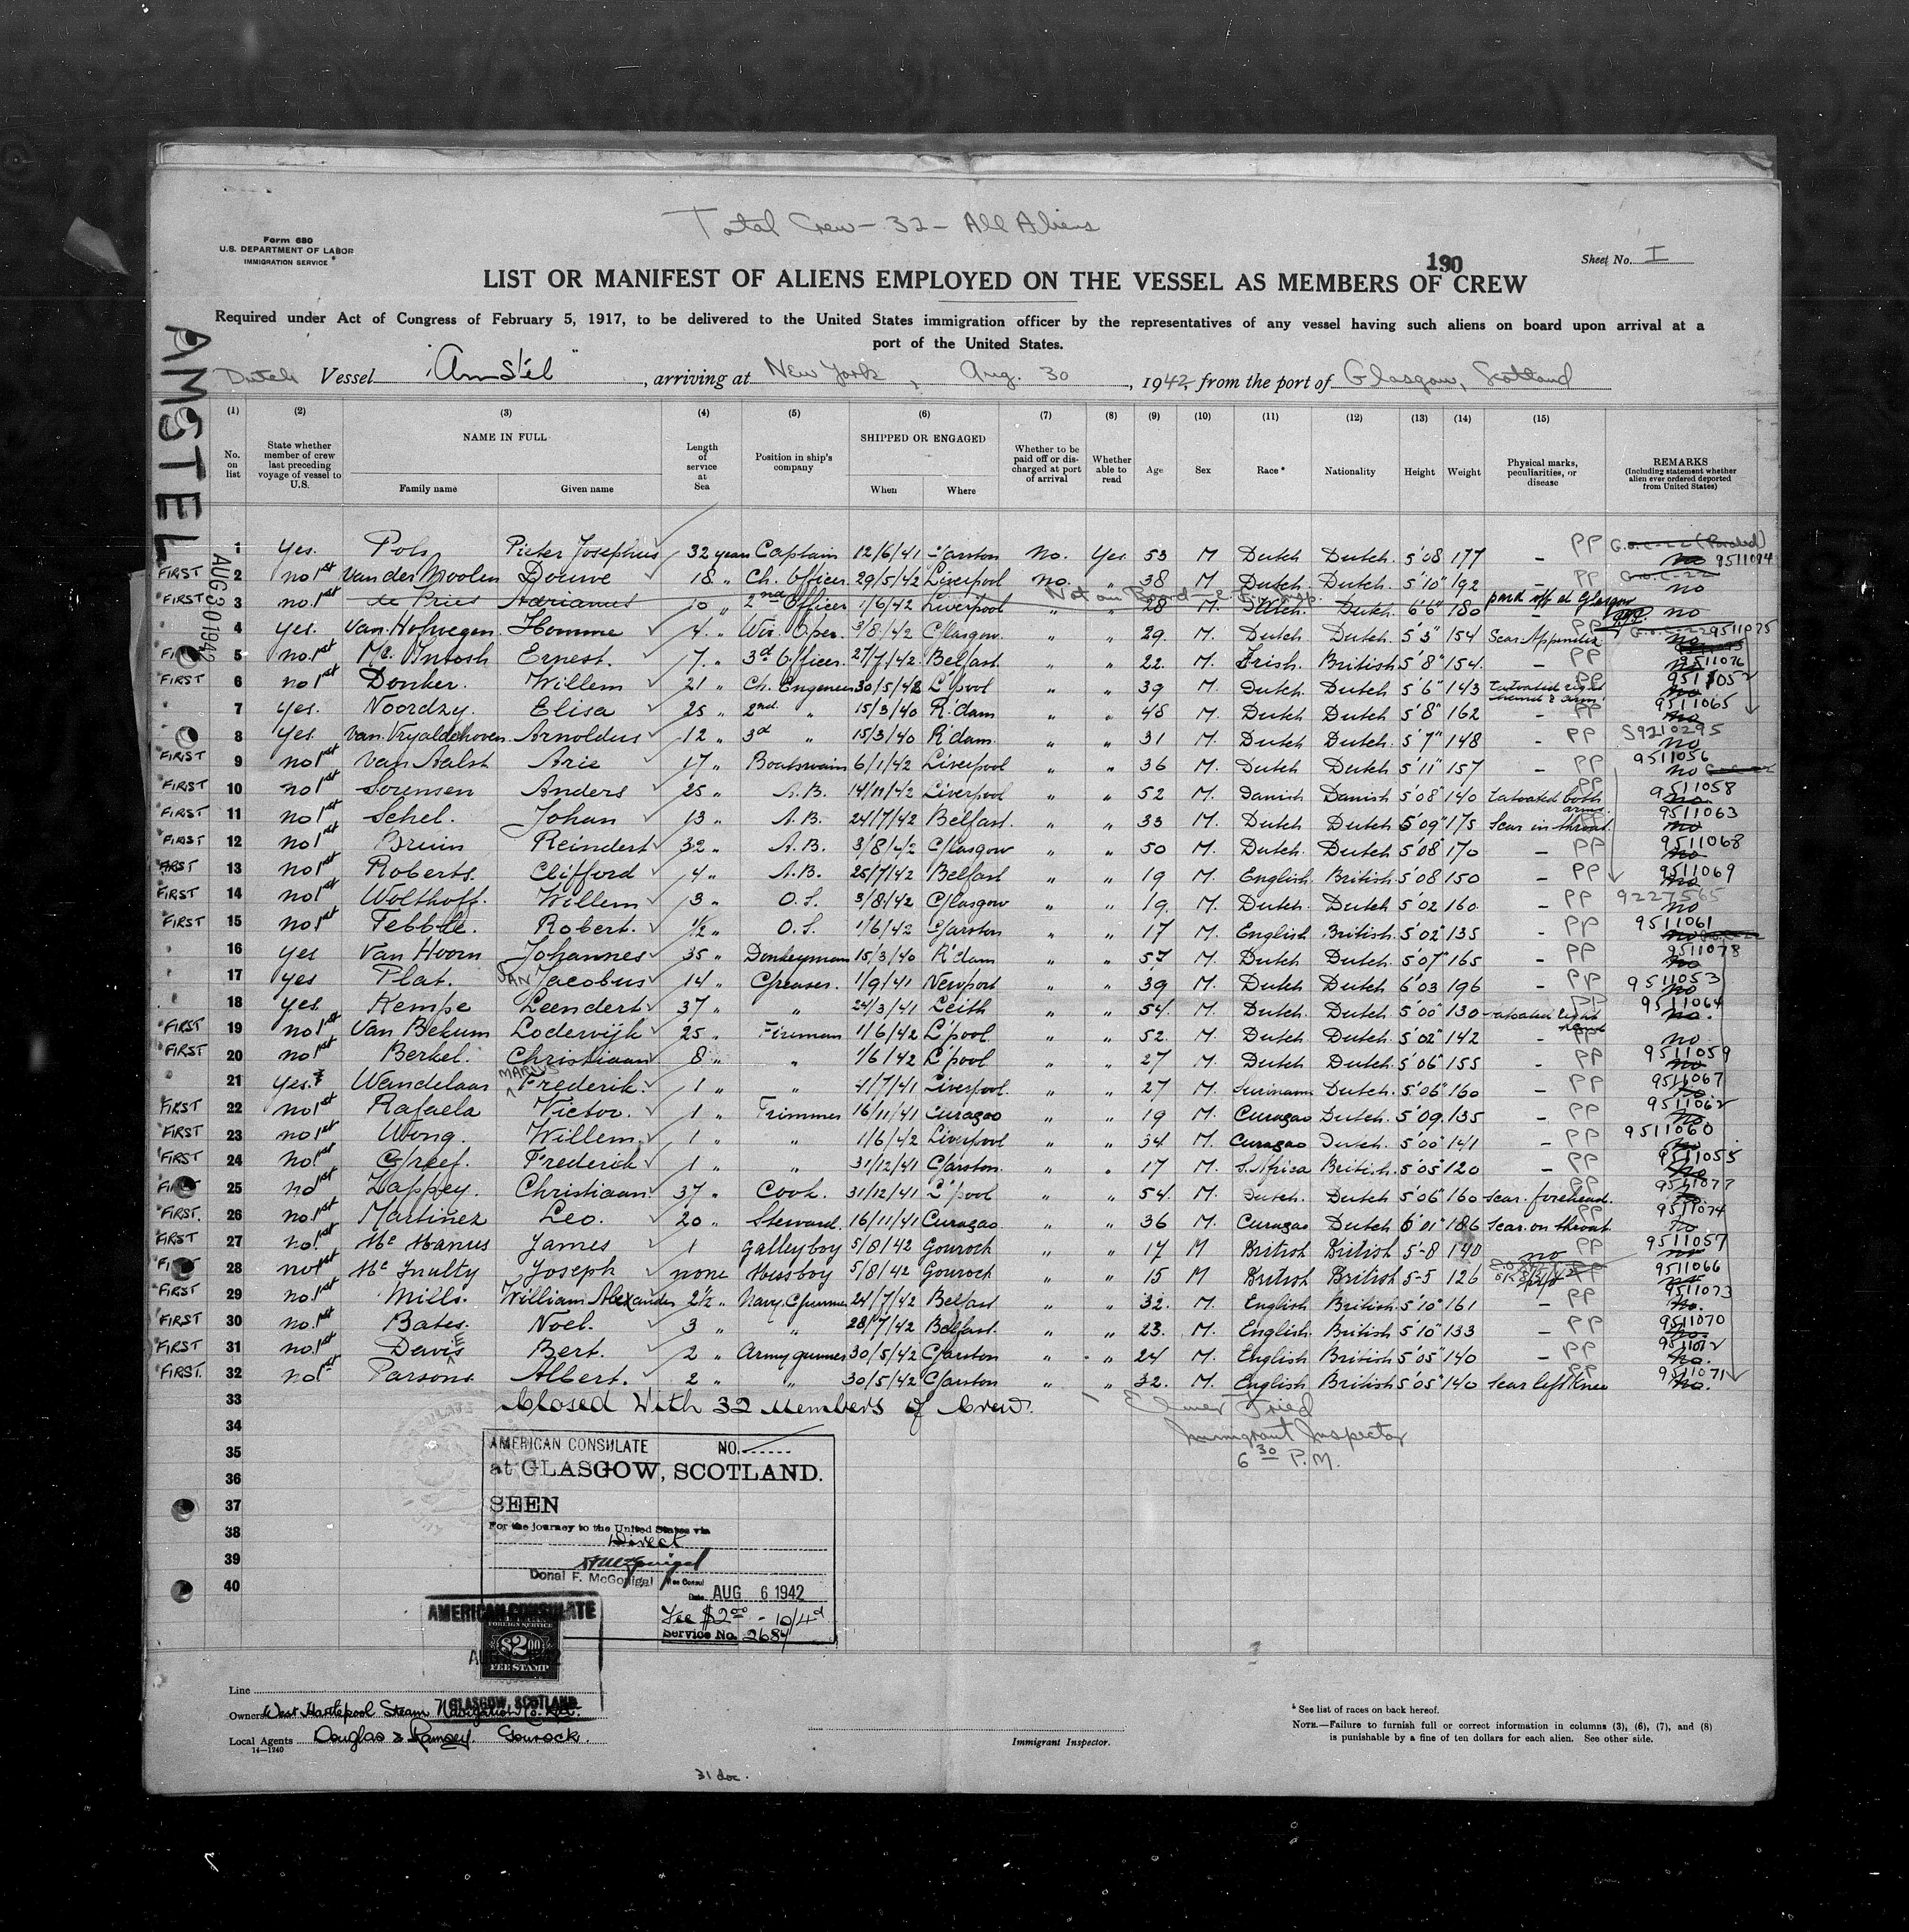 Total Crew - 32 - All Aliens
Form 680
U.S. DEPARTMENT OF LABOR
IMMIGRATION SERVICE
190
Sheet No. I
LIST OR MANIFEST OF ALIENS EMPLOYED ON THE VESSEL AS MEMBERS OF CREW
Required under Act of Congress of February 5, 1917, to be delivered to the United States immigration officer by the representatives of any vessel having such aliens on board upon arrival at a
port of the United States.
AMSTEL
AUG 30 1942
Dutch Vessel "Amstel", arriving at New York, Aug. 30, 1942, from the port of Glasgow, Scotland
(1) (2) (3) (4) (5) (6) (7) (8) (9) (10) (11) (12) (13) (14) (15)
No. on list
State whether member of crew last preceding voyage of vessel to U.S.
NAME IN FULL
Family name
Given name
Length of service at Sea
Position in ship's company
SHIPPED OR ENGAGED
When
Where
Whether to be paid off or discharged at port of arrival
Whether able to read
Age
Sex
Race*
Nationality
Height
Weight
Physical marks, peculiarities, or disease
REMARKS
(Including statement whether alien ever ordered deported from United States)
1 Yes. Pols Pieter Josephus 32 years Captain 12/6/41 Garston No. Yes 53 M Dutch Dutch. 5'08 177 - PP no 9511094
FIRST 2 no 1st Van der Moolen Douwe 18 " Ch. Officer 29/5/42 Liverpool no. " 38 M Dutch. Dutch. 5'10" 192 - PP no
FIRST 3 no. 1st de Pries Adrianus 10 " 2nd Officer 1/6/42 Liverpool " " 28 M. Dutch. Dutch. 6'6" 180 paid off at Glasgow no
Not on Board
4 yes. Van Hofwegen Homme 4. " Wir. Oper. 3/8/42 Glasgow " " 29. M. Dutch Dutch. 5'5" 154 Scar Appendix PP 9511075
FIRST 5 no. 1st Mc. Intosh Ernest. 7. " 3d Officer 27/7/42 Belfast " " 22. M. Irish. British 5'8" 154. - PP 9511076
FIRST 6 no 1st Donker. Willem 21 " Ch. Engeneer 30/5/42 L'pool " " 39 M. Dutch. Dutch 5'6" 143 Tatoated right hand & arm PP 9511052
7 yes. Noordzy. Elisa 25 " 2nd. " 15/3/40 R'dam " " 48 M. Dutch Dutch 5'8" 162 - PP 9511065
8 Yes. Arnoldus 12 " 3d " 15/3/40 R'dam. " " 31 M. Dutch Dutch. 5'7" 148 - PP S9210295 no
FIRST 9 no 1st Van Aalst Arie 17 " Boatswain 6/1/42 Liverpool " " 36 M. Dutch Dutch 5'11" 157 - PP 9511056 no
FIRST 10 no 1st Sorensen Anders 25 " A.B. 14/11/42 Liverpool " " 52 M. Danish Danish 5'08 140 Tatoated both arms. PP 9511058 no
FIRST 11 no 1st Schel. Johan 13 " A.B. 24/7/42 Belfast. " " 33 M. Dutch Dutch 5'09" 175 Scar in throat. PP 9511063 no
FIRST 12 no 1st Bruin Reindert 32 " A.B. 3/8/42 Glasgow " " 50 M. Dutch. Dutch 5'08 170 - PP 9511068 no
FIRST 13 no 1st Roberts. Clifford 4 " A.B. 25/7/42 Belfast " " 19 M. English. British 5'08 150 - PP 9511069 no
FIRST 14 no 1st Wolthoff. Willem 3 " O.S. 3/8/42 Glasgow " " 19. M. Dutch. Dutch 5'02 160. - PP no
FIRST 15 no 1st Tebble. Robert. 1/2 " O.S. 1/6/42 Garston " " 17 M. English. British. 5'02" 135 - PP 9511061 no
16 yes Van Hoorn Johannes 35 " Donkeyman 15/3/40 R'dam " " 57 M. Dutch Dutch. 5'07" 165 - PP 9511078 no
17 yes Plat. JAN Jacobus 14 " Greaser. 1/9/41 Newport " " 39 M. Dutch Dutch 6'03 196 - PP 9511053 no
18 yes. Kempe Leendert 37 " " 24/3/41 Leith " " 54. M. Dutch. Dutch. 5'00" 130 Tatoated right hand PP 9511064 no.
FIRST 19 no 1st Van Bekum Lodewijk 25 " Fireman 1/6/42 L'pool " " 52. M. Dutch. Dutch. 5'02" 142 - no
FIRST 20 no 1st Berkel. Christiaan 8 " " 1/6/42 L'pool " " 27 M Dutch Dutch. 5'06" 155 - PP 9511059 no
21 yes. Wendelaar MARIUS Frederik. 1 " " 4/7/41 Liverpool. " " 27 M. Suriname Dutch. 5'06" 160 - PP 9511067 no.
FIRST 22 no 1st Rafaela Victor. 1 " Trimmer 16/11/41 Curaçao " " 19 M. Curaçao Dutch. 5'09. 135 - PP 9511062 no
FIRST 23 no 1st Wong. Willem. 1 " " 1/6/42 Liverpool " " 34 M. Curaçao Dutch. 5'00" 141 - PP 9511060 no
FIRST 24 no 1st Greef. Frederik 1 " " 31/12/41 Garston. " " 17 M. S. Africa British. 5'05" 120 - PP 9511055 no
FIRST 25 no 1st Lappey. Christiaan 37 " Cook. 31/12/41 L'pool " " 54. M. Dutch. Dutch 5'06" 160 Scar. forehead. PP 9511077 no.
FIRST. 26 no. 1st Martinez Leo. 20 " Steward. 16/11/41 Curaçao " " 36 M. Curaçao Dutch 6'01" 186 Scar. on throat PP 9511074 no
FIRST 27 no. 1st Mc Manus James 1 galleyboy 5/8/42 Gourock " " 17 M British British 5'-8 140 no PP 9511057 no
FIRST 28 no 1st Mc Inulty Joseph none Messboy 5/8/42 Gourock " " 15 M British British 5-5 126 PP 9511066 no
FIRST 29 no. 1st Mills. William Alexander 2 1/2 " Navy. Gunner 24/7/42 Belfast " " 32. M. English British. 5'10" 161 - PP 9511073 no.
FIRST 30 no. 1st Bates. Noel. 3 " " 28/7/42 Belfast. " " 23. M. English. British 5'10" 133 - PP 9511070 no.
FIRST 31 no. 1st Bert. 2 " Army gunner 30/5/42 Garston " " 24 M. English. British 5'05" 140 - PP 9511072 no.
FIRST. 32 no 1st Parsons Albert. 2 " " 30/5/42 Garston " " 32. M. English British 5'05" 140 Scar left Knee PP 9511071 no.
33 Closed With 32 Members of Crew. Elmer Fried
34 Immigrant Inspector
35 6 30 P.M.
36
37
38
39
40
AMERICAN CONSULATE NO.
at GLASGOW, SCOTLAND.
SEEN
For the journey to the United States via
Direct
Donal F. McGonigal Vice Consul
Date AUG 6 1942
Fee $2.00 - 10/4d
Service No. 2684
AMERICAN CONSULATE
FOREIGN SERVICE
$2.00
FEE STAMP
GLASGOW, SCOTLAND
Line
Owners West Hartlepool Steam Navigation Co. Ltd.
Local Agents Douglas & Ramsey. Gourock.
14-1240
Immigrant Inspector.
* See list of races on back hereof.
NOTE.—Failure to furnish full or correct information in columns (3), (6), (7), and (8)
is punishable by a fine of ten dollars for each alien. See other side.
31 doc.